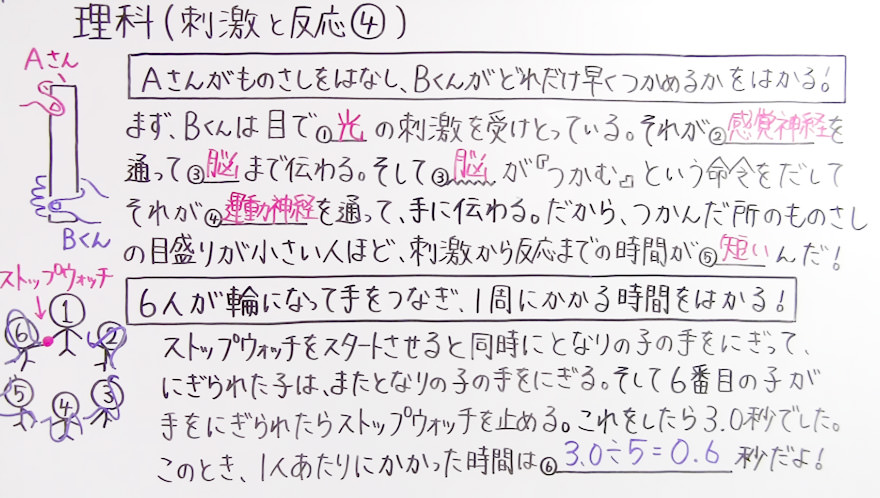 理科(刺激と反応④)
Aさん
Aさんがものさしをはなし、Bくんがどれだけ早くつかめるかをはかる!
まず、Bくんは目で①光の刺激を受けとっている。それが②感覚神経を
通って③脳まで伝わる。そして③脳が『つかむ』という命令をだして
それが④運動神経を通って、手に伝わる。だから、つかんだ所のものさし
Bくん
の目盛りが小さい人ほど、刺激から反応までの時間が⑤短いんだ!
ストップウォッチ
6人が輪になって手をつなぎ、1周にかかる時間をはかる!
① ② ③ ④ ⑤ ⑥
ストップウォッチをスタートさせると同時にとなりの子の手をにぎって、
にぎられた子は、またとなりの子の手をにぎる。そして6番目の子が
手をにぎられたらストップウォッチを止める。これをしたら3.0秒でした。
このとき、1人あたりにかかった時間は⑥3.0÷5=0.6秒だよ!